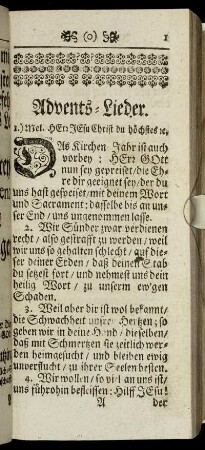 (o) 1
Advents-Lieder.
1.) Mel. HErr JEsu Christ du höchstes ꝛc.
DAs Kirchen-Jahr ist auch
vorbey: HErr GOtt
nun sey gepreiset/ die Eh-
re dir geeignet sey/ der du
uns hast gespeiset/ mit deinem Wort
und Sacrament; dasselbe bis an un-
ser End/ uns ungenommen lasse.
2. Wir Sünder zwar verdienen
recht/ also gestrafft zu werden/ weil
wir uns so gehalten schlecht/ auf die-
ser deiner Erden/ daß deinen Stab
du setzest fort/ und nehmest uns dein
heilig Wort/ zu unserm ew'gen
Schaden.
3. Weil aber dir ist wol bekannt/
die Schwachheit unsrer Hertzen; so
geben wir in deine Hand/ dieselben/
daß mit Schmertzen sie zeitlich wer-
den heimgesucht/ und bleiben ewig
unverflucht/ zu ihrer Seelen besten.
4. Wir wollen/ so viel an uns ist/
uns führohin befleissen: Hilff JEsu!
A der